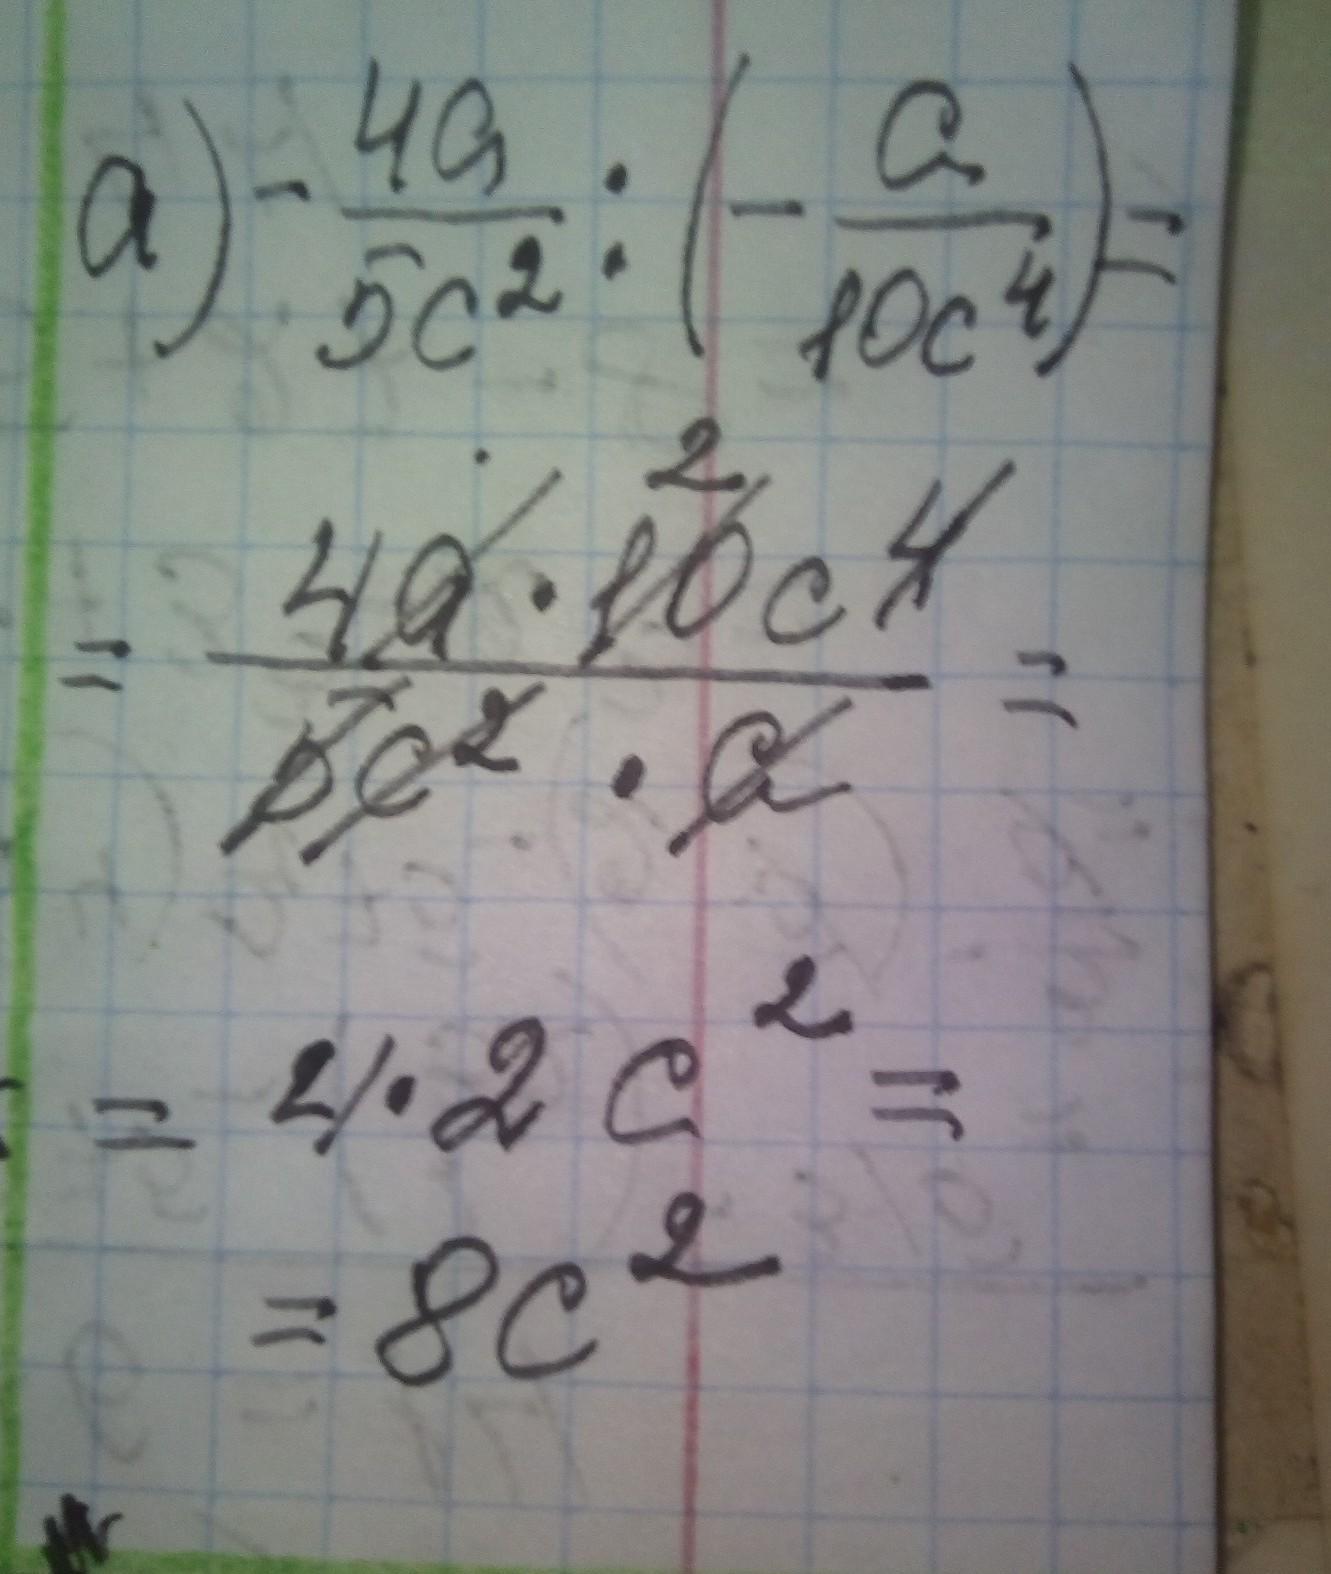 а) - 4a/5c² : (- a/10c⁴) =
= 4a · 10c⁴ / 5c² · a =
2
= 4 · 2c² =
= 8c²